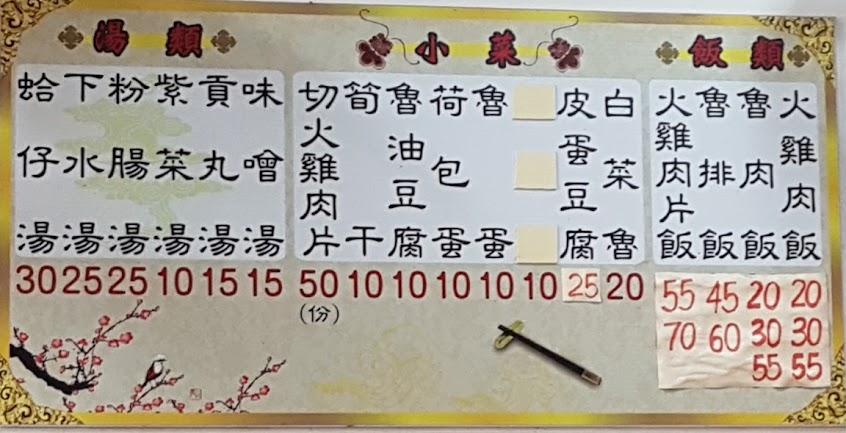 飯類
火雞肉飯
20
30
55
魯肉飯
20
30
55
魯排飯
45
60
火雞肉片飯
55
70
小菜
白菜魯
20
皮蛋豆腐
25
10
魯蛋
10
荷包蛋
10
魯油豆腐
10
筍干
10
切火雞肉片
50
(份)
湯類
味噲湯
15
貢丸湯
15
紫菜湯
10
粉腸湯
25
下水湯
25
蛤仔湯
30